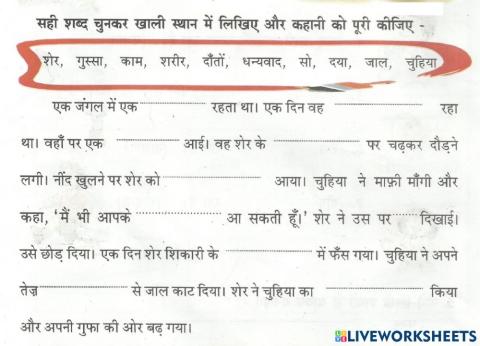 सही शब्द चुनकर खाली स्थान में लिखिए और कहानी को पूरी कीजिए -
शेर, गुस्सा, काम, शरीर, दाँतों, धन्यवाद, सो, दया, जाल, चुहिया
एक जंगल में एक .................... रहता था। एक दिन वह .................... रहा
था। वहाँ पर एक .................... आई। वह शेर के .................... पर चढ़कर दौड़ने
लगी। नींद खुलने पर शेर को .................... आया। चुहिया ने माफ़ी माँगी और
कहा, 'मैं भी आपके .................... आ सकती हूँ।' शेर ने उस पर ...... दिखाई।
उसे छोड़ दिया। एक दिन शेर शिकारी के .................... में फँस गया। चुहिया ने अपने
तेज़ .................... से जाल काट दिया। शेर ने चुहिया का .................... किया
और अपनी गुफा की ओर बढ़ गया।
LIVEWORKSHEETS